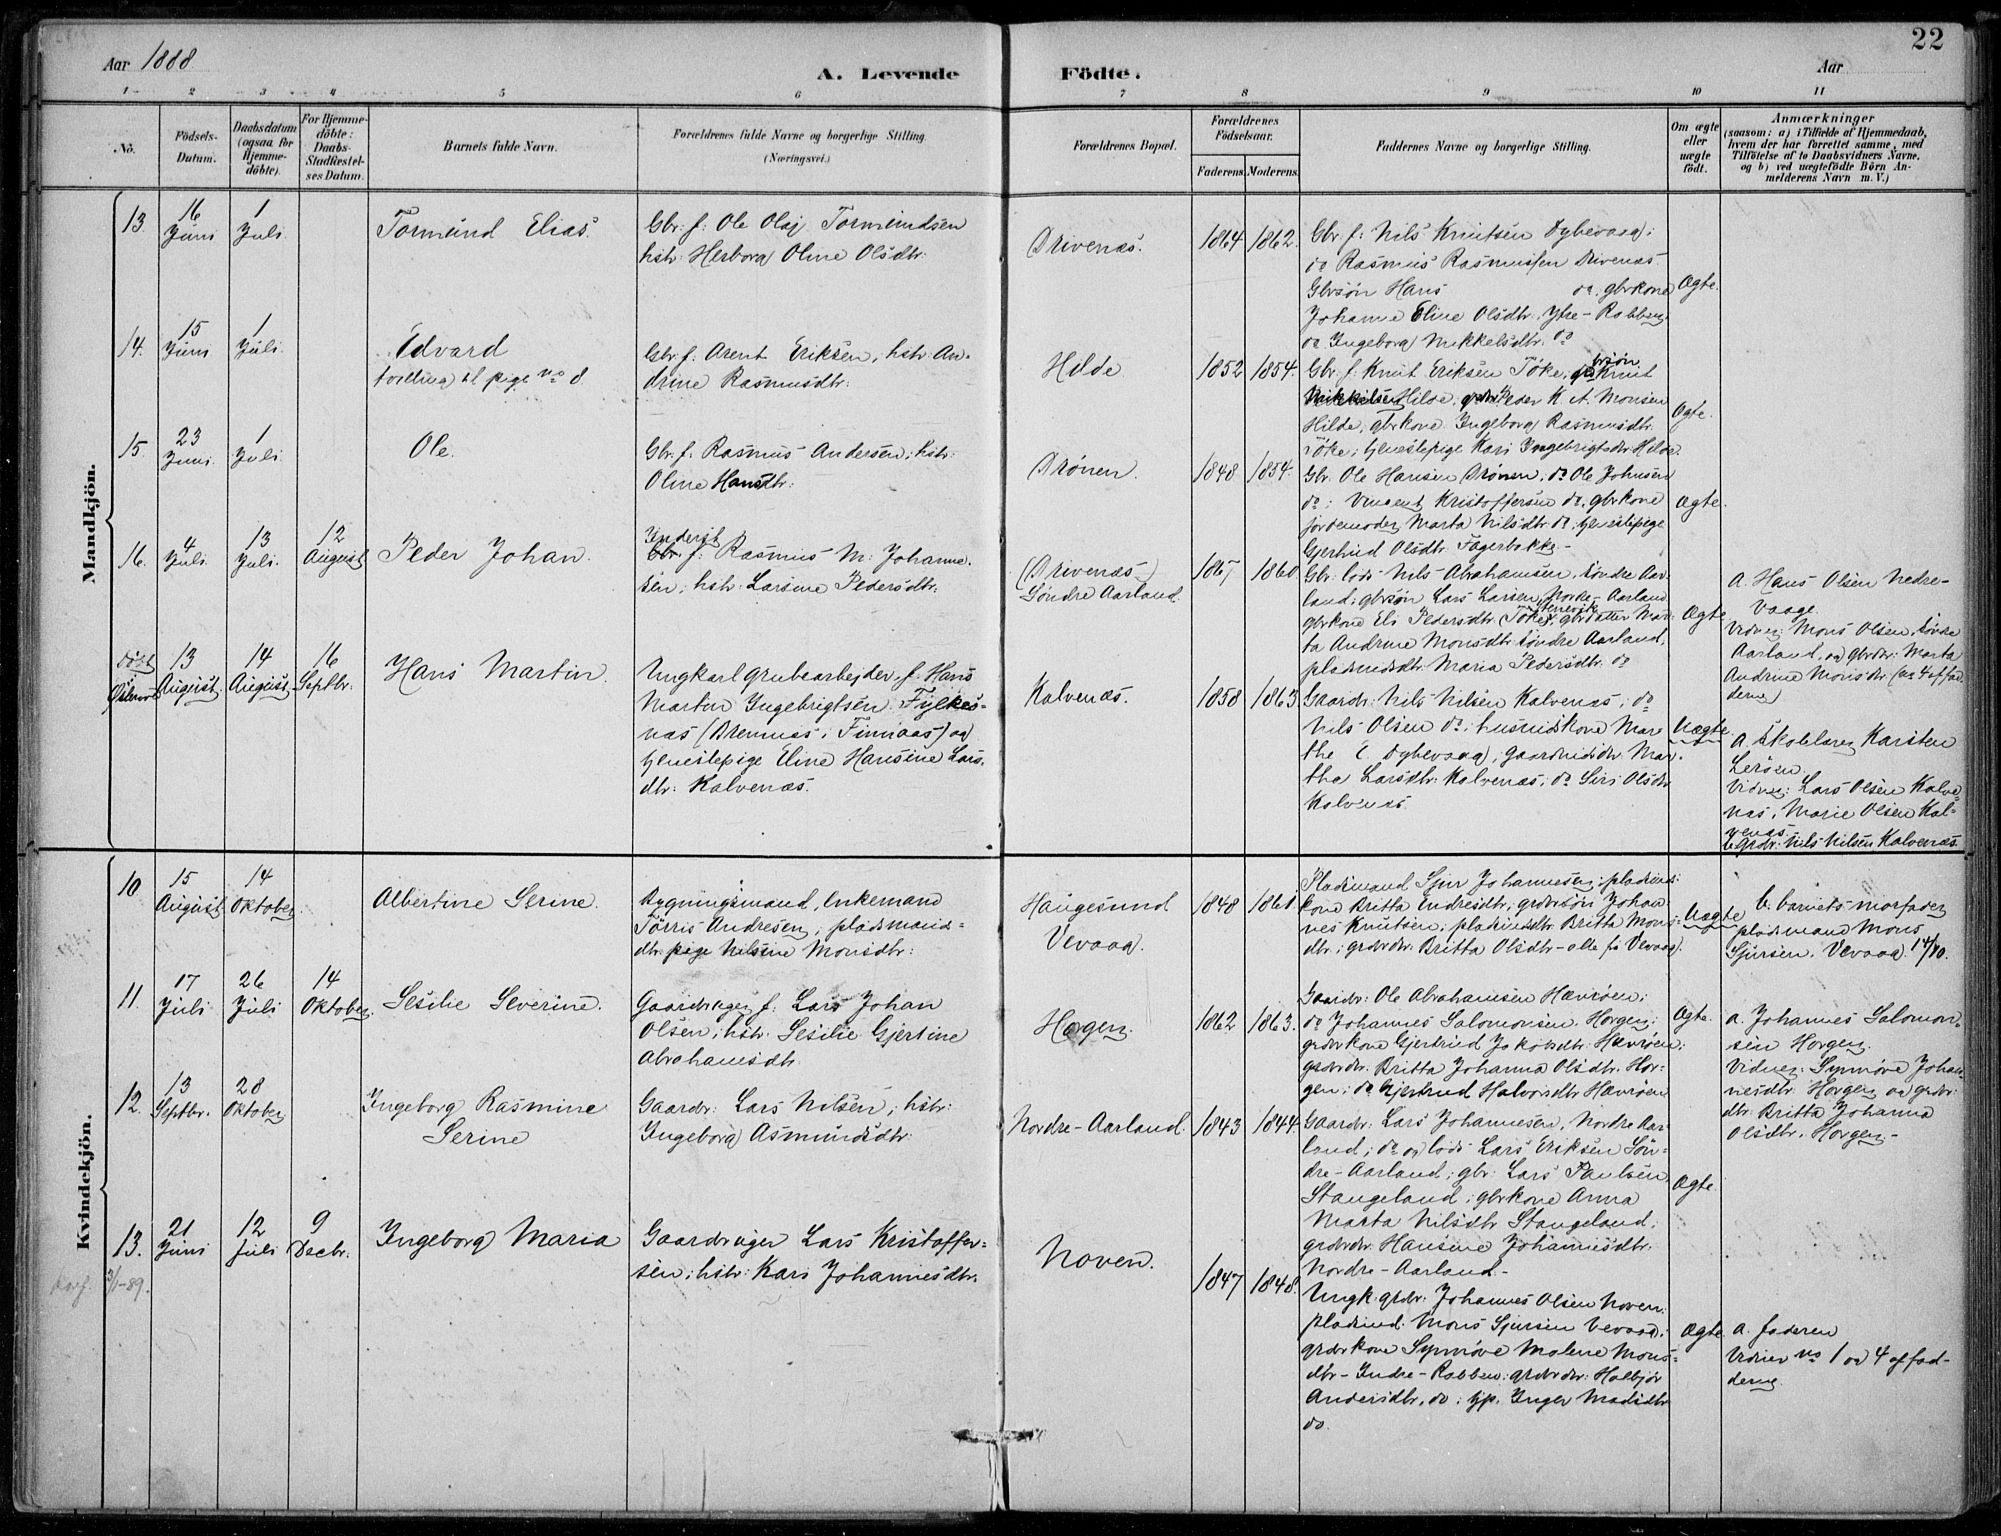 Aar 1888
A. Levende Födte.
22
Aar
1 2 3 4 5 6 7 8 9 10 11
No.
Födsels-Datum.
Daabsdatum (ogsaa for Hjemme-döbte).
For Hjemme-döbte: Daabs-Stadfæstel-ses Datum.
Barnets fulde Navn.
Forældrenes fulde Navne og borgerlige Stilling. (Næringsvei.)
Forældrenes Bopæl.
Forældrenes Födselsaar.
Faderens. Moderens.
Faddernes Navne og borgerlige Stilling.
Om ægte eller uægte födt.
Anmærkninger
(saasom: a) i Tilfælde af Hjemmedaab,
hvem der har forrettet samme, med
Tilföielse af to Daabsvidners Navne,
og b) ved uægtefödte Börn An-
melderens Navn m. V.)
Mandkjön.
13. 16 Juni 1 Juli
Tormund Elias.
Gbr. f. Ole Olaj Tormundsen
hstr: Herborg Oline Olsdtr:
Drivenæs.
1864 1862.
Gbr. f. Nils Knutsen Dybevaag;
do Rasmus Rasmussen Drivenæs
Gbrsøn Hans do, gbrkone
Johanne Eline Olsdtr. Ytre-Robben
do Ingeborg Mikkelsdtr. do
Ægte.
14. 15 Juni 1 Juli.
Edvard
tvilling til pige No 8.
Gbr. f. Arent Eriksen, hstr: An-
drine Rasmusdtr:
Hilde
1852 1854.
Gbr. f. Knut Eriksen Töke, Knut
Hilde, Peder K. A. Monsen
Hilde, gbrkone Ingeborg Rasmusdtr.
Töke; tjenestepige Kari Ingebrigtsdtr Hilde
Ægte.
15. 23 Juni 1 Juli.
Ole.
Gbr. f. Rasmus Andersen, hstr:
Oline Hansdtr:
Drönen.
1848 1854.
Gbr. Ole Hansen Drönen, do Ole Johnsen
do; Vincent Kristoffersen do, gbrkone
jordemoder Marta Nilsdtr. do, tjenestepige
Gjertrud Olsdtr. Fagerbakke-
Ægte.
16. 4 Juli. 13 Juli. 12 August
Peder Johan.
Inderst
Gbr. f. Rasmus M. Johanne-
sen; hstr: Larsine Pedersdtr:
(Drivenæs)
Söndre Aarland.
1867 1860
Gbr. lods Nils Abrahamsen, Söndre Aar-
land; gbrsön Lars Larsen, Nordre-Aarland
gbrkone Eli Pedersdtr. Töke, gbrdatter Mar-
ta Andrine Monsdtr. Söndre Aarland,
pladsmdsdtr. Maria Pedersdtr. do
Ægte.
a. Hans Olsen Nedre-
Vaage.
Vidner: Mons Olsen, Söndre
Aarland, og gbrdtr: Marta
Andrine Monsdtr (no 4 af fad-
derne)
13 August 14 August 16 Septbr.
Hans Martin.
Ungkarl grubearbejder f. Hans
Martin Ingebrigtsen Fylkes-
næs (Bremnes i Finnaas) og
tjenestepige Eline Hansine Lars-
dtr: Kalvenæs.
Kalvenæs.
1858 1863
Gaardbr: Nils Nilsen Kalvenæs; do
Nils Olsen do; husmdskone Mar-
the E. Dybevaag, gaardmdsdtr. Mar-
tha Larsdtr: Kalvenæs, do Siri Olsdtr
Kalvenæs
Uægte.
a. Skolelærer Karsten
Leröen.
Vidner: Lars Olsen Kalve-
næs, Marie Olsen Kal-
venæs.
b. Grdbr: Nils Nilsen Kalvenæs.
Kvindekjön.
10. 15 August 14 Oktober.
Albertine Serine.
Bygningsmand, Enkemand
Törris Andresen; pladsmands-
dtr. pige Nilsine Monsdtr:
Haugesund
Vevaag.
1848 1861
Pladsmand Sjur Johannesen; pladsmds-
kone Britta Endresdtr, grdbrsön Johan-
nes Knutsen; pladsmdsdtr. Britta Mons-
dtr; grdbrdtr. Britta Olsdtr- alle fra Vevaag.
Uægte
b. barnets morfader
pladsmand Mons
Sjursen, Vevaag 14/10.
11. 17 Juli 26 Juli 14 Oktober.
Sesilie Severine.
Gaardbruger f. Lars Johan
Olsen; hstr. Sesilie Gjertine
Abrahamsdtr.
Horgen.
1862 1863.
Gaardbr: Ole Abrahamsen Havröen;
do Johannes Salomonsen, Horgen;
grdbrkone Gjertrud Jakobsdtr. Havröen;
grdbrdtr. Britta Johanna Olsdtr. Hor-
gen; do Gjertrud Halvorsdtr Havröen
Ægte.
a. Johannes Salomon-
sen Horgen.
Vidner: Synnöve Johan-
nesdtr. Horgen og grdbr:
dtr. Britta Johanna
Olsdtr. Horgen.-
12. 13 Septbr. 28 Oktober
Ingeborg Rasmine
Serine
Gaardbr: Lars Nilsen; hstr:
Ingeborg Asmundsdtr:
Nordre-Aarland.
1843 1844
Gaardbr: Lars Johannesen, Nordre Aar-
land; do og lods Lars Eriksen Sön-
dre-Aarland; gbr. Lars Paulsen
Stangeland; gbrkone Anna
Marta Nilsdtr Stangeland;
grdbrdtr. Hansine Johannesdtr.
Nordre-Aarland.-
Ægte.
13. 21 Juni 12 Juli 9 Decbr.
3/1-89.
Ingeborg Maria
Gaardbruger Lars Kristoffer-
sen; hstr: Kari Johannesdtr.
Noven.
1847 1848.
Ungk. grdbr: Johannes Olsen Noven;
pladsmd. Mons Sjursen Vevaag;
grdbrkone Synnöve Malene Mons-
dtr- Indre-Robben; grdbrdtr: Halbjör
Andersdtr, do; tjp. Inger Madsdtr
do.
Ægte
a. faderen
Vidner no 1 og 4 af fad-
derne